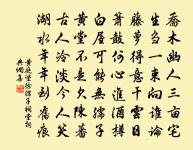 喬木幽人三畝宅
生芻一束向誰論
藤蘿得意干雲日
簫鼓何心進酒樽
白屋可能無孺子
黃堂不是欠陳蕃
古人冷淡今人笑
湖水年年到舊痕
黃庭堅徐孺子祠堂